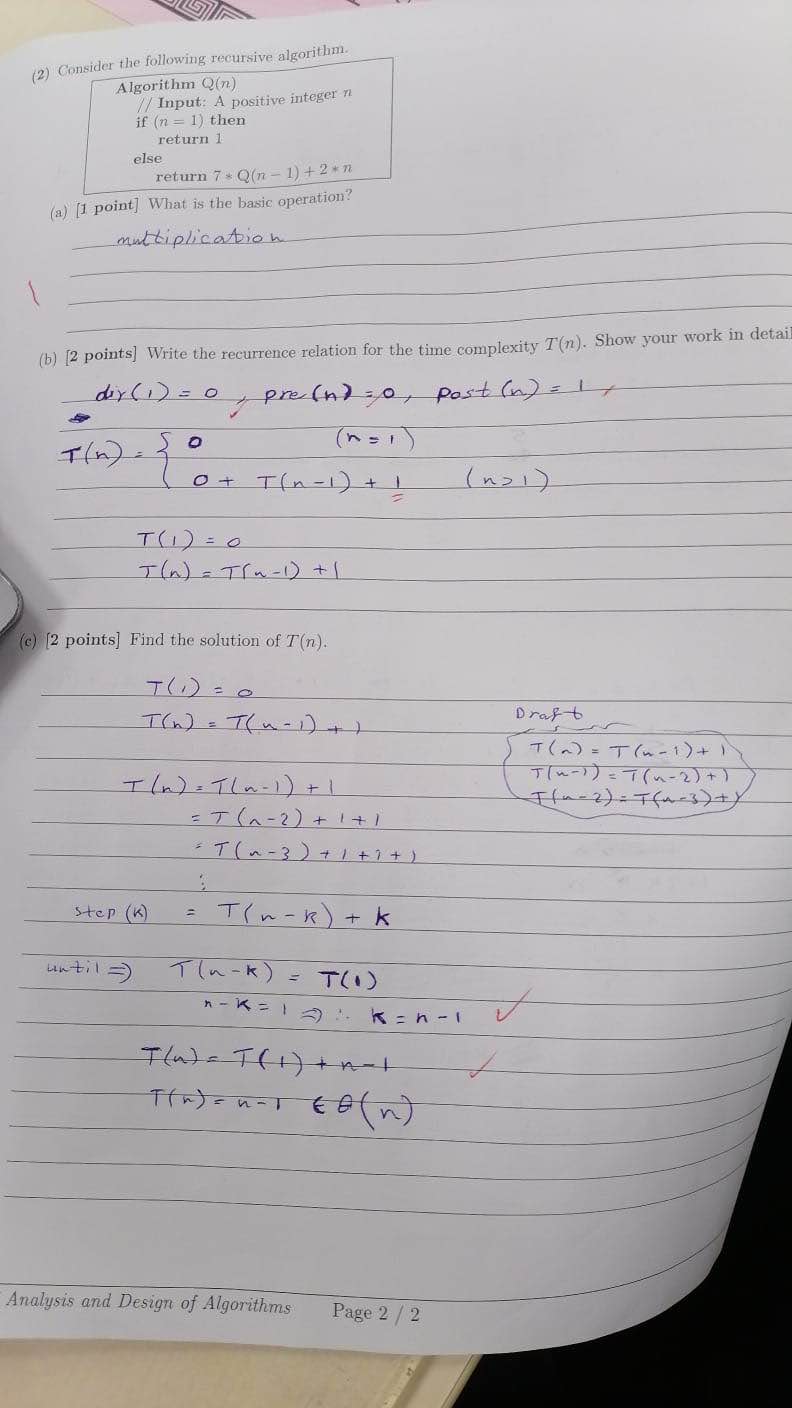 (2) Consider the following recursive algorithm.
Algorithm Q(n)
// Input: A positive integer n
if (n = 1) then
return 1
else
return 7 * Q(n − 1) + 2 * n
(a) [1 point] What is the basic operation?
multiplication
(b) [2 points] Write the recurrence relation for the time complexity T(n). Show your work in detail
dir(1) = 0 , pre(n) = 0, post(n) = 1
T(n) = { 0 (n = 1)
0 + T(n-1) + 1 (n > 1)
T(1) = 0
T(n) = T(n-1) + 1
(c) [2 points] Find the solution of T(n).
T(1) = 0
T(n) = T(n-1) + 1
Draft
T(n) = T(n-1) + 1
T(n-1) = T(n-2) + 1
T(n-2) = T(n-3) + 1
T(n) = T(n-1) + 1
= T(n-2) + 1 + 1
= T(n-3) + 1 + 1 + 1
⋮
step (k) = T(n-k) + k
until ⇒ T(n-k) = T(1)
n-k = 1 ⇒ ∴ k = n-1
T(n) = T(1) + n-1
T(n) = n-1 ∈ θ(n)
Analysis and Design of Algorithms Page 2 / 2